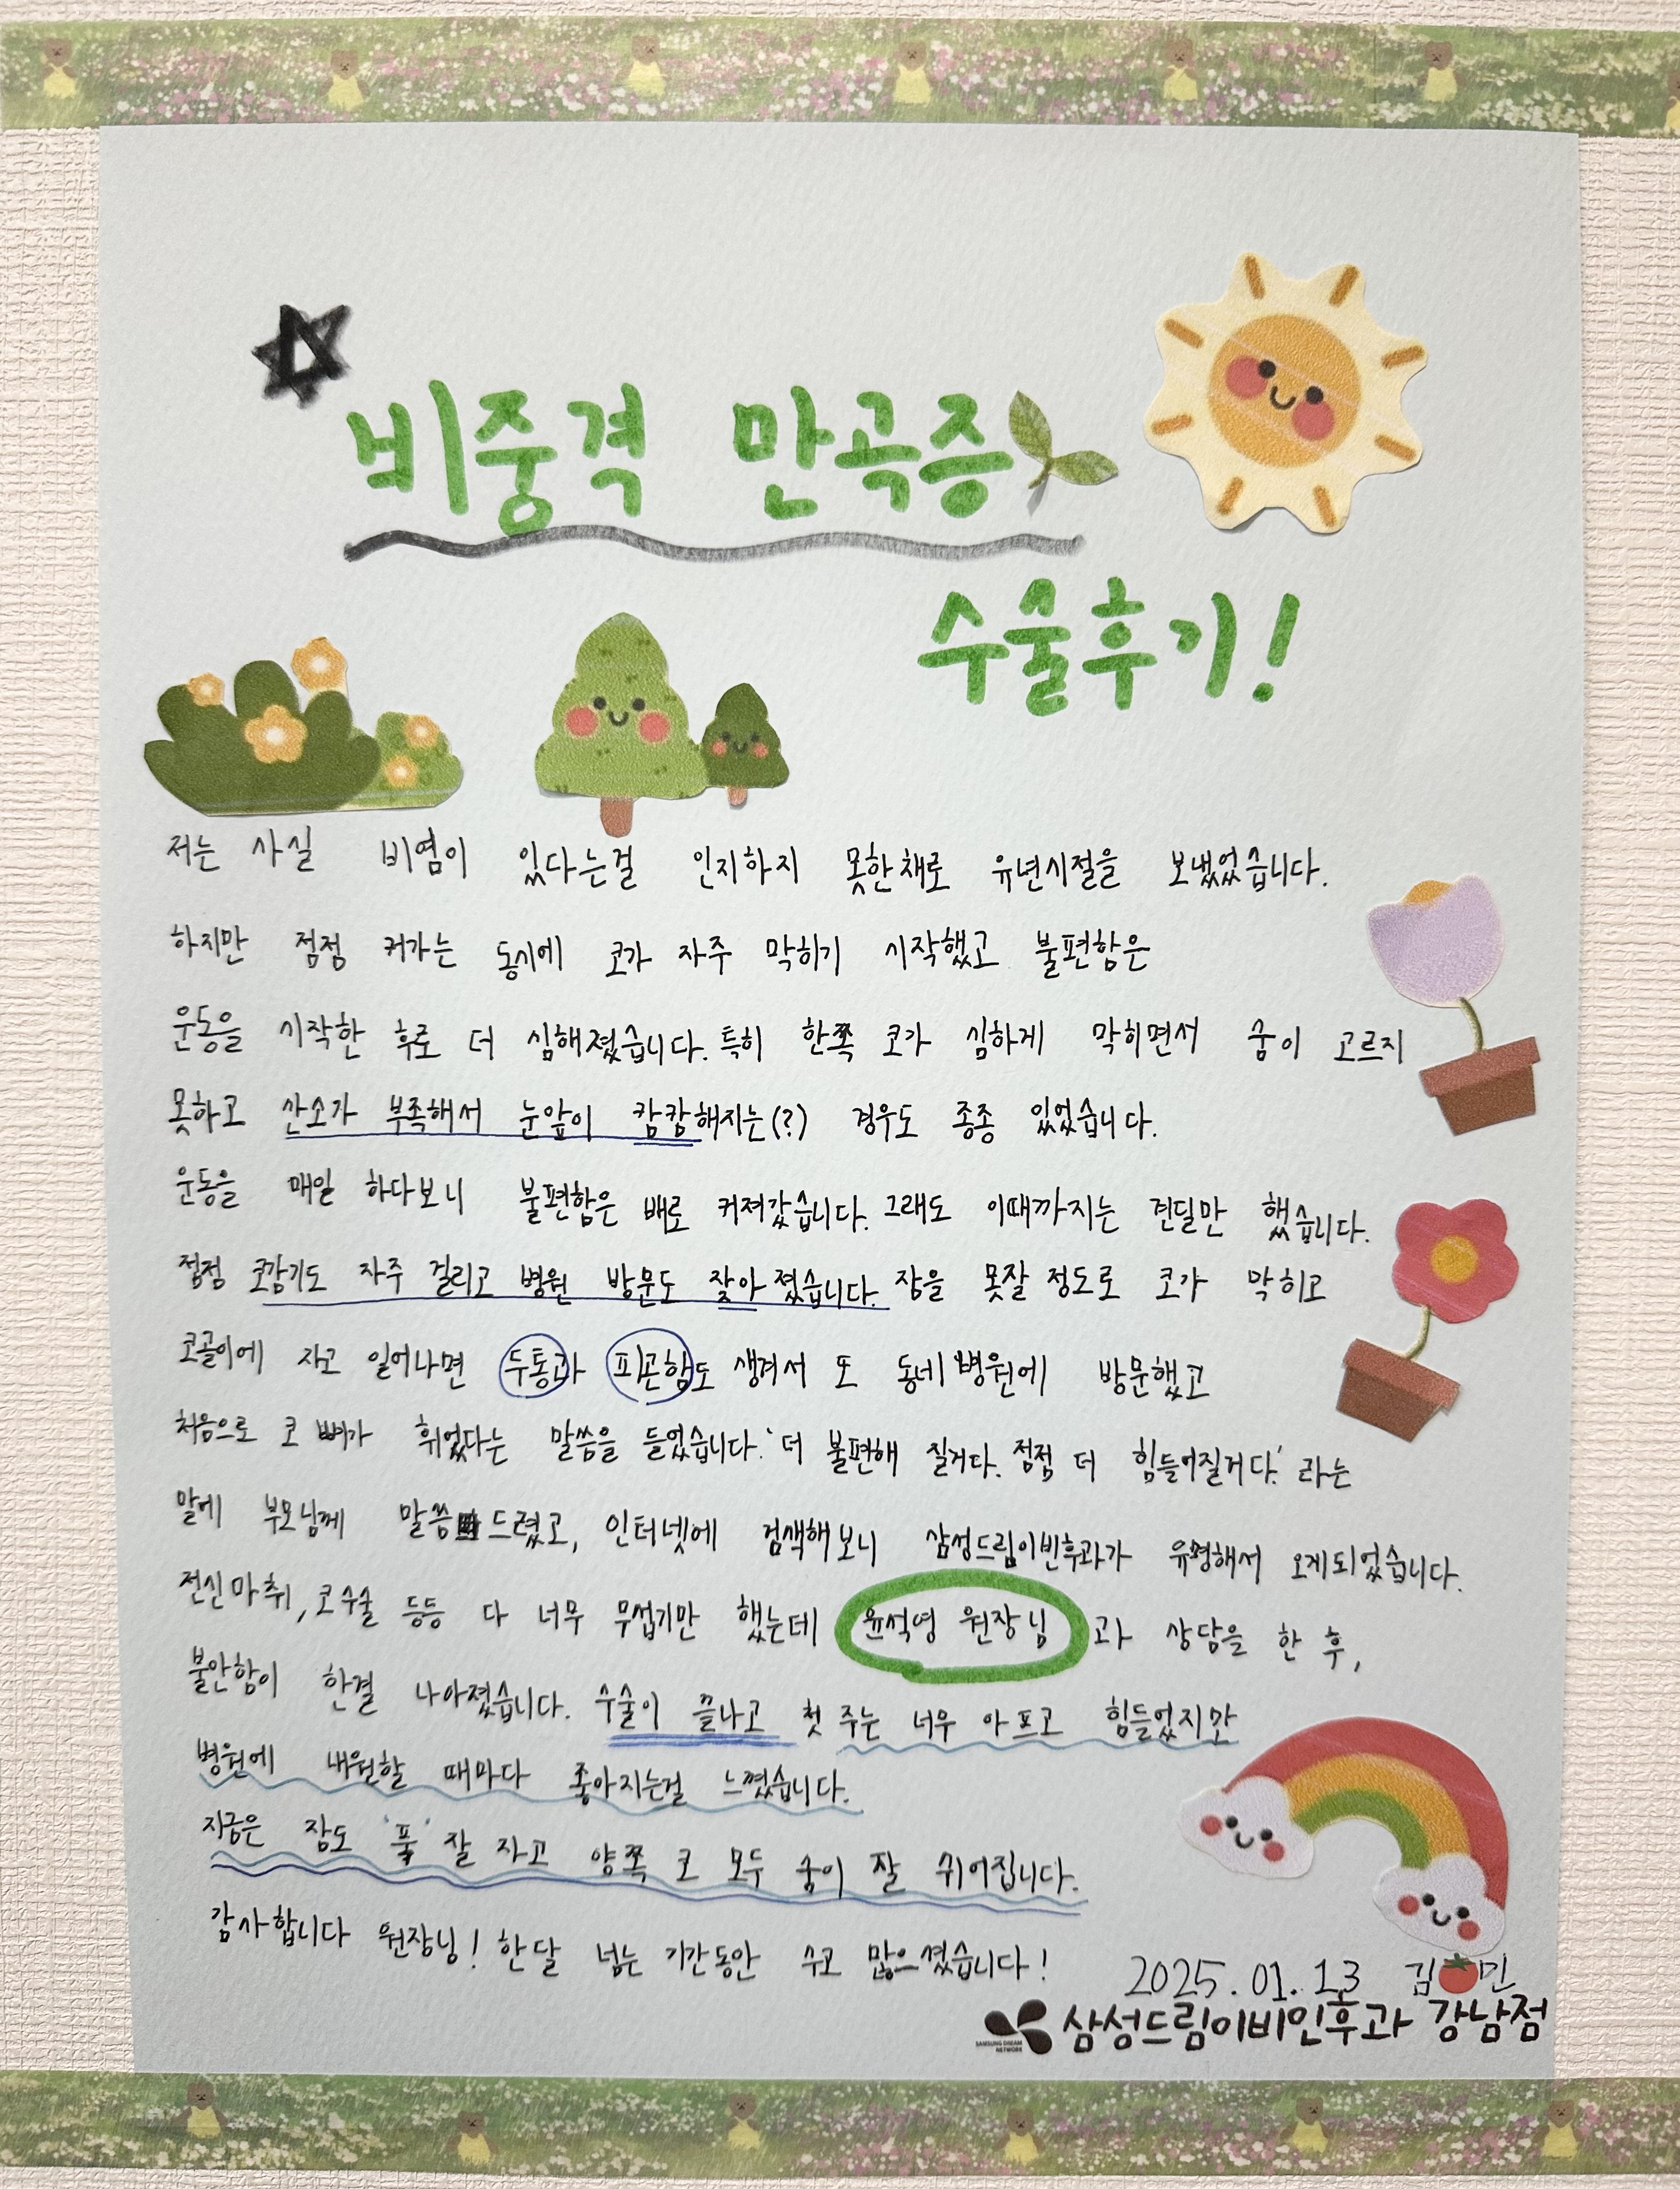 비중격 만곡증
수술후기!
저는 사실 비염이 있다는걸 인지하지 못한채로 유년시절을 보냈었습니다.
하지만 점점 커가는 동시에 코가 자주 막히기 시작했고 불편함은
운동을 시작한 후로 더 심해졌습니다. 특히 한쪽 코가 심하게 막히면서 숨이 고르지
못하고 산소가 부족해서 눈앞이 캄캄해지는(?) 경우도 종종 있었습니다.
운동을 매일 하다보니 불편함은 배로 커져갔습니다. 그래도 이때까지는 견딜만 했습니다.
점점 코감기도 자주 걸리고 병원 방문도 잦아졌습니다. 잠을 못잘 정도로 코가 막히고
코골이에 자고 일어나면 두통과 피곤함도 생겨서 또 동네 병원에 방문했고
처음으로 코 뼈가 휘었다는 말씀을 들었습니다. '더 불편해 질거다. 점점 더 힘들어질거다.' 라는
말에 부모님께 말씀 드렸고, 인터넷에 검색해보니 삼성드림이빈후과가 유명해서 오게되었습니다.
전신마취, 코수술 등등 다 너무 무섭기만 했는데 윤석영 원장님 과 상담을 한 후,
불안함이 한결 나아졌습니다. 수술이 끝나고 첫 주는 너무 아프고 힘들었지만
병원에 내원할 때마다 좋아지는걸 느꼈습니다.
지금은 잠도 '푹' 잘 자고 양쪽 코 모두 숨이 잘 쉬어집니다.
감사합니다 원장님! 한달 넘는 기간동안 수고 많으셨습니다!
2025.01.13 김 민
SAMSUNG DREAM NETWORK 삼성드림이비인후과 강남점